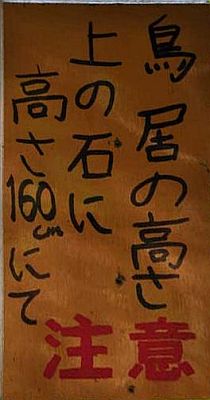 鳥居の高さ
上の石に
高さ160cmにて
注意